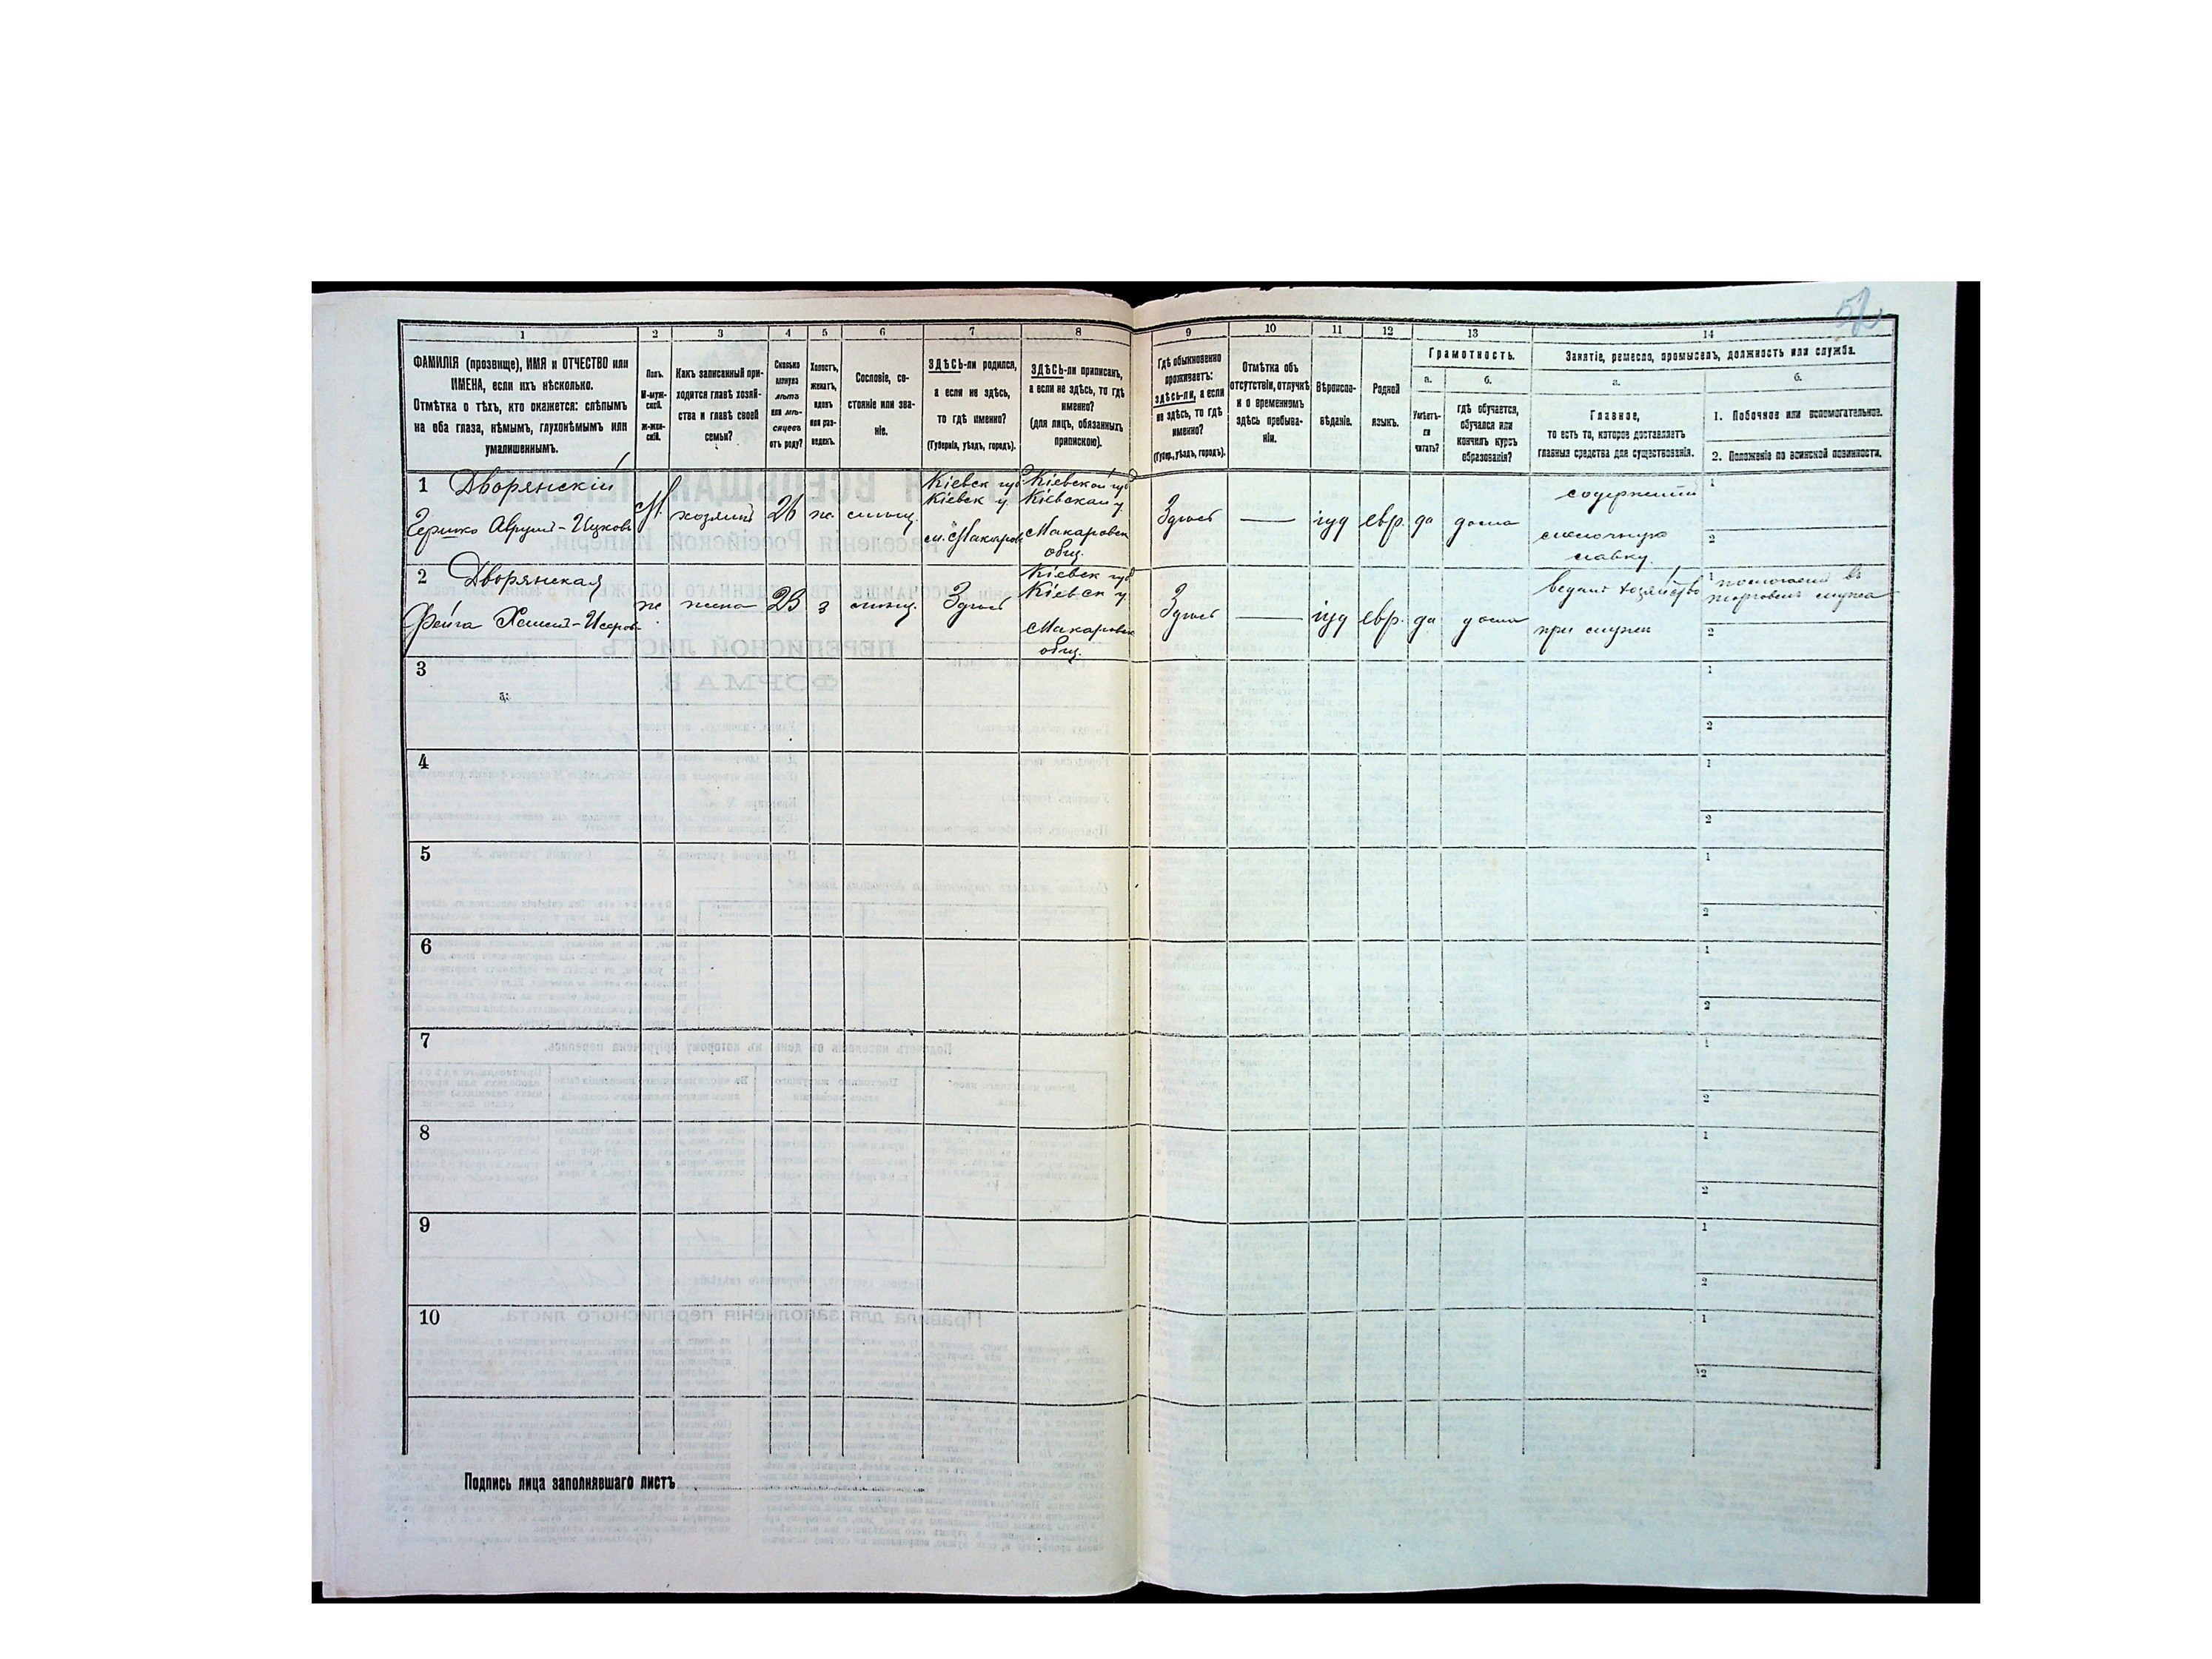 52
1 2 3 4 5 6 7 8 9 10 11 12 13 14
ФАМИЛІЯ (прозвище), ИМЯ и ОТЧЕСТВО или
ИМЕНА, если ихъ нѣсколько.
Отмѣтка о тѣхъ, кто окажется: слѣпымъ
на оба глаза, нѣмымъ, глухонѣмымъ или
умалишеннымъ.
Полъ.
М-муж-
ской.
ж-жен-
скій.
Какъ записанный при-
ходится главѣ хозяй-
ства и главѣ своей
семьи?
Сколько
минуло
лѣтъ
или мѣ-
сяцевъ
отъ роду?
Холостъ,
женатъ,
вдовъ
или раз-
веденъ.
Сословіе, со-
стояніе или зва-
ніе.
ЗДѢСЬ-ли родился,
а если не здѣсь,
то гдѣ именно?
(Губернія, уѣздъ, городъ).
ЗДѢСЬ-ли приписанъ,
а если не здѣсь, то гдѣ
именно?
(для лицъ, обязанныхъ
припискою).
Гдѣ обыкновенно
проживаетъ:
здѣсь-ли, а если
не здѣсь, то гдѣ
именно?
(Губер., уѣздъ, городъ).
Отмѣтка объ
отсутствіи, отлучкѣ
и о временномъ
здѣсь пребыва-
ніи.
Вѣроиспо-
вѣданіе.
Родной
языкъ.
Грамотность.
а.
Умѣетъ-
ли
читать?
б.
гдѣ обучается,
обучался или
кончилъ курсъ
образованія?
Занятіе, ремесло, промыселъ, должность или служба.
а.
Главное,
то есть то, которое доставляетъ
главныя средства для существованія.
б.
1. Побочное или вспомогательное.
2. Положеніе по воинской повинности.
1 Дворянскій
Гершко Аврумъ-Ицковъ
М.
хозяинъ
26
ж.
мѣщ.
Кіевск губ
Кіевск у.
м. Макаров
Кіевской губ
Кіевскаго у.
Макаровск
общ.
Здѣсь
—
іуд
евр.
да
дома
содержитъ
мелочную
лавку.
1
2
2 Дворянская
Фейга Хаимъ-Исеров
ж
жена
23
з
мѣщ.
Здѣсь
Кіевск губ
Кіевск у.
Макаровск
общ.
Здѣсь
—
іуд
евр.
да
дома
ведетъ хозяйство
при мужѣ
1 помогаетъ въ
торговлѣ мужа
2
3
1
2
4
1
2
5
1
2
6
1
2
7
1
2
8
1
2
9
1
2
10
1
2
Подпись лица заполнявшаго листъ